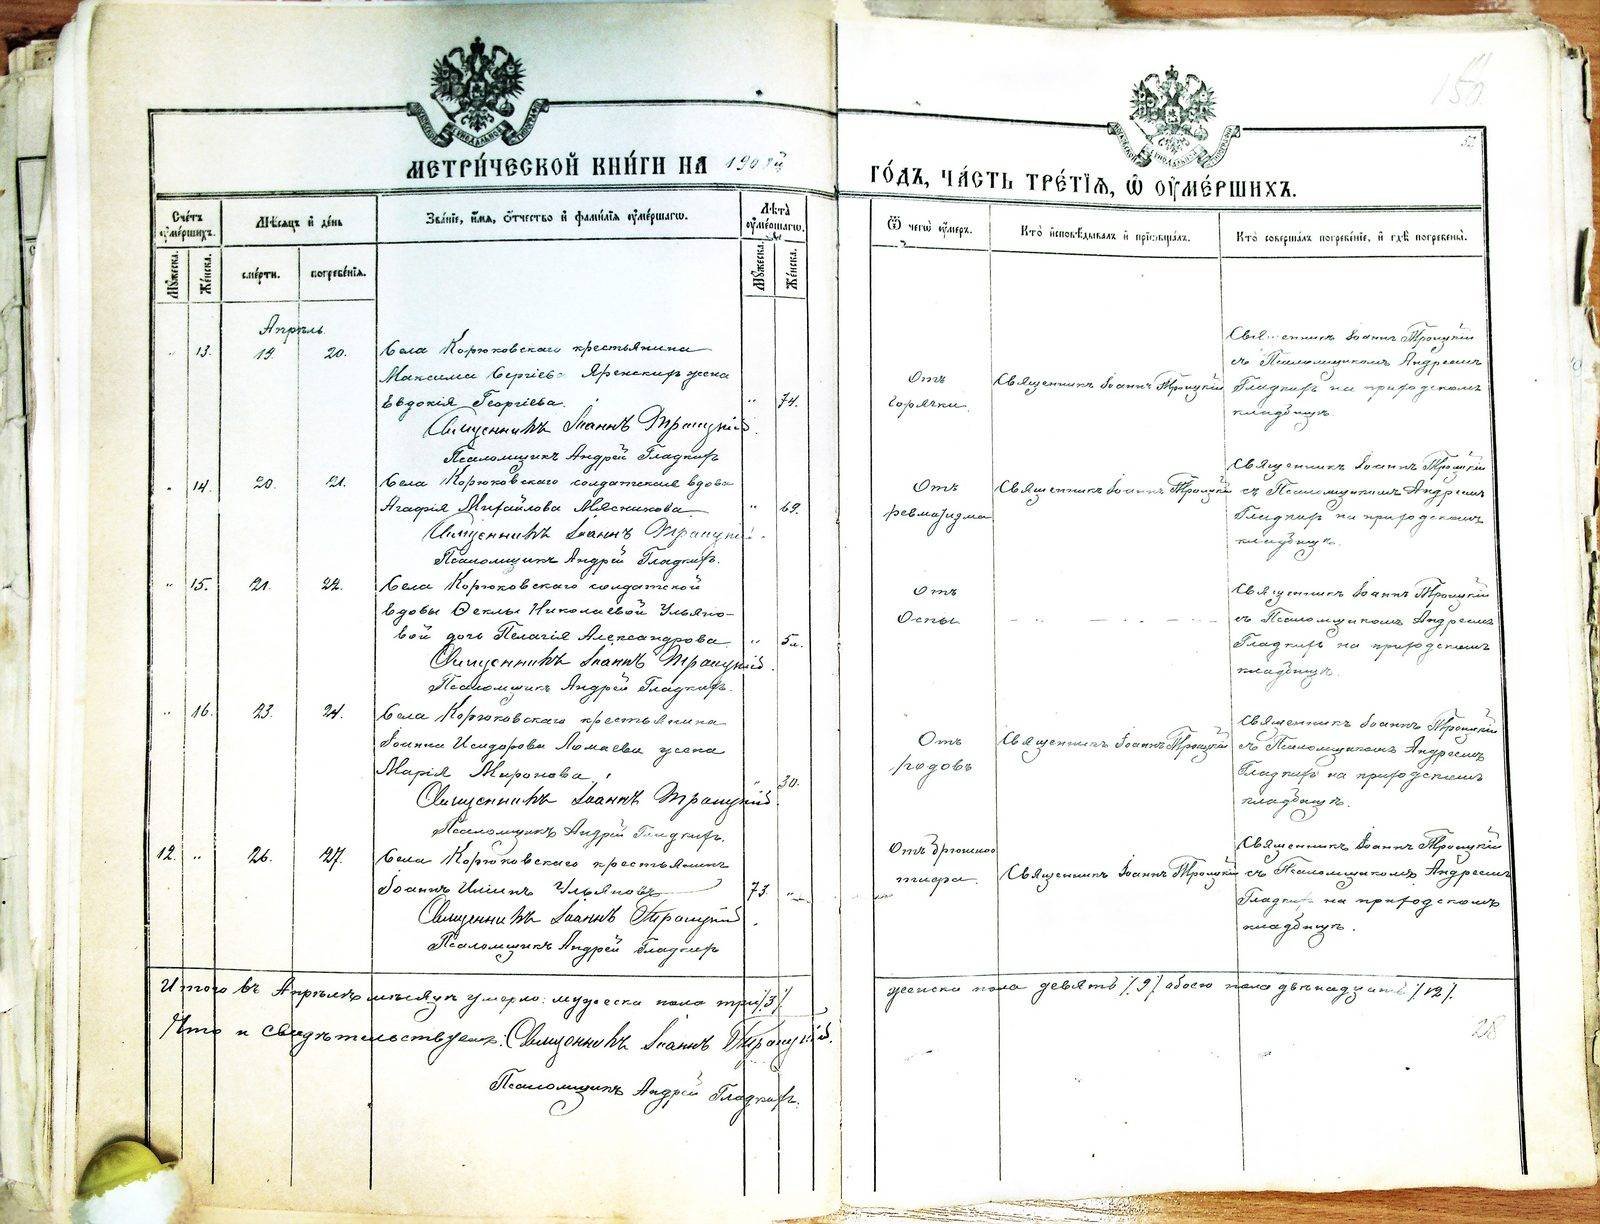 МЕТРИ́ЧЕСКОЙ КНИ́ГИ НА 1908й
ГО́ДЪ, ЧА́СТЬ ТРЕ́ТІѦ, Ѡ҆ ОУ҆МЕ́РШИХЪ.
Сче́тъ оу҆ме́ршихъ.
Мꙋ́жеска.
Же́нска.
Мѣ́сѧцъ и҆ де́нь
сме́рти.
погребе́нїѧ.
Зва́нїе, и҆́мѧ, ѻ҆́тчество и҆ фами́лїѧ оу҆ме́ршагѡ.
Лѣ́та оу҆ме́ршагѡ.
Мꙋ́жеска.
Же́нска.
Ѿ чегѡ̀ оу҆́меръ.
Кто̀ и҆сповѣ́дывалъ и҆ прїѡбща́лъ.
Кто̀ соверша́лъ погребе́нїе, и҆ гдѣ̀ погребены̀.
Апрѣль
" 13. 19. 20. Села Корюковскаго крестьянина
Максима Сергіева Яренскихъ жена
Евдокія Георгіева. " 74.
Священникъ Іоаннъ Троицкій.
Псаломщикъ Андрей Гладкихъ
Отъ горячки.
Священникъ Іоаннъ Троицкій
Священникъ Іоаннъ Троицкій
съ Псаломщикомъ Андреемъ
Гладкихъ на приходскомъ
кладбищѣ.
" 14. 20. 21. Села Корюковскаго солдатская вдова
Агафія Михайлова Мясникова. " 69.
Священникъ Іоаннъ Троицкій.
Псаломщикъ Андрей Гладкихъ.
Отъ ревматизма
Священникъ Іоаннъ Троицкій
Священникъ Іоаннъ Троицкій
съ Псаломщикомъ Андреемъ
Гладкихъ на приходскомъ
кладбищѣ.
" 15. 21. 22. Села Корюковскаго солдатской
вдовы Ѳеклы Николаевой Ульяно-
вой дочь Пелагія Александрова " 5л.
Священникъ Іоаннъ Троицкій.
Псаломщикъ Андрей Гладкихъ.
Отъ Оспы
Священникъ Іоаннъ Троицкій
съ Псаломщикомъ Андреемъ
Гладкихъ на приходскомъ
кладбищѣ.
" 16. 23. 24. Села Корюковскаго крестьянина
Іоанна Исидорова Ломаева жена
Марія Миронова. " 30.
Священникъ Іоаннъ Троицкій.
Псаломщикъ Андрей Гладкихъ.
Отъ родовъ
Священникъ Іоаннъ Троицкій
Священникъ Іоаннъ Троицкій
съ Псаломщикомъ Андреемъ
Гладкихъ на приходскомъ
кладбищѣ.
12. " 26. 27. Села Корюковскаго крестьянинъ
Іоаннъ Ульяновъ 73. "
Священникъ Іоаннъ Троицкій.
Псаломщикъ Андрей Гладкихъ
Отъ брюшного тифа.
Священникъ Іоаннъ Троицкій
Священникъ Іоаннъ Троицкій
съ Псаломщикомъ Андреемъ
Гладкихъ на приходскомъ
кладбищѣ.
Итого въ Апрѣлѣ мѣсяцѣ умерло: мужеска пола три /3/.
женска пола девять /9/ обоего пола двѣнадцать /12/.
Что и свидѣтельствуемъ: Священникъ Іоаннъ Троицкій.
28
Псаломщикъ Андрей Гладкихъ.